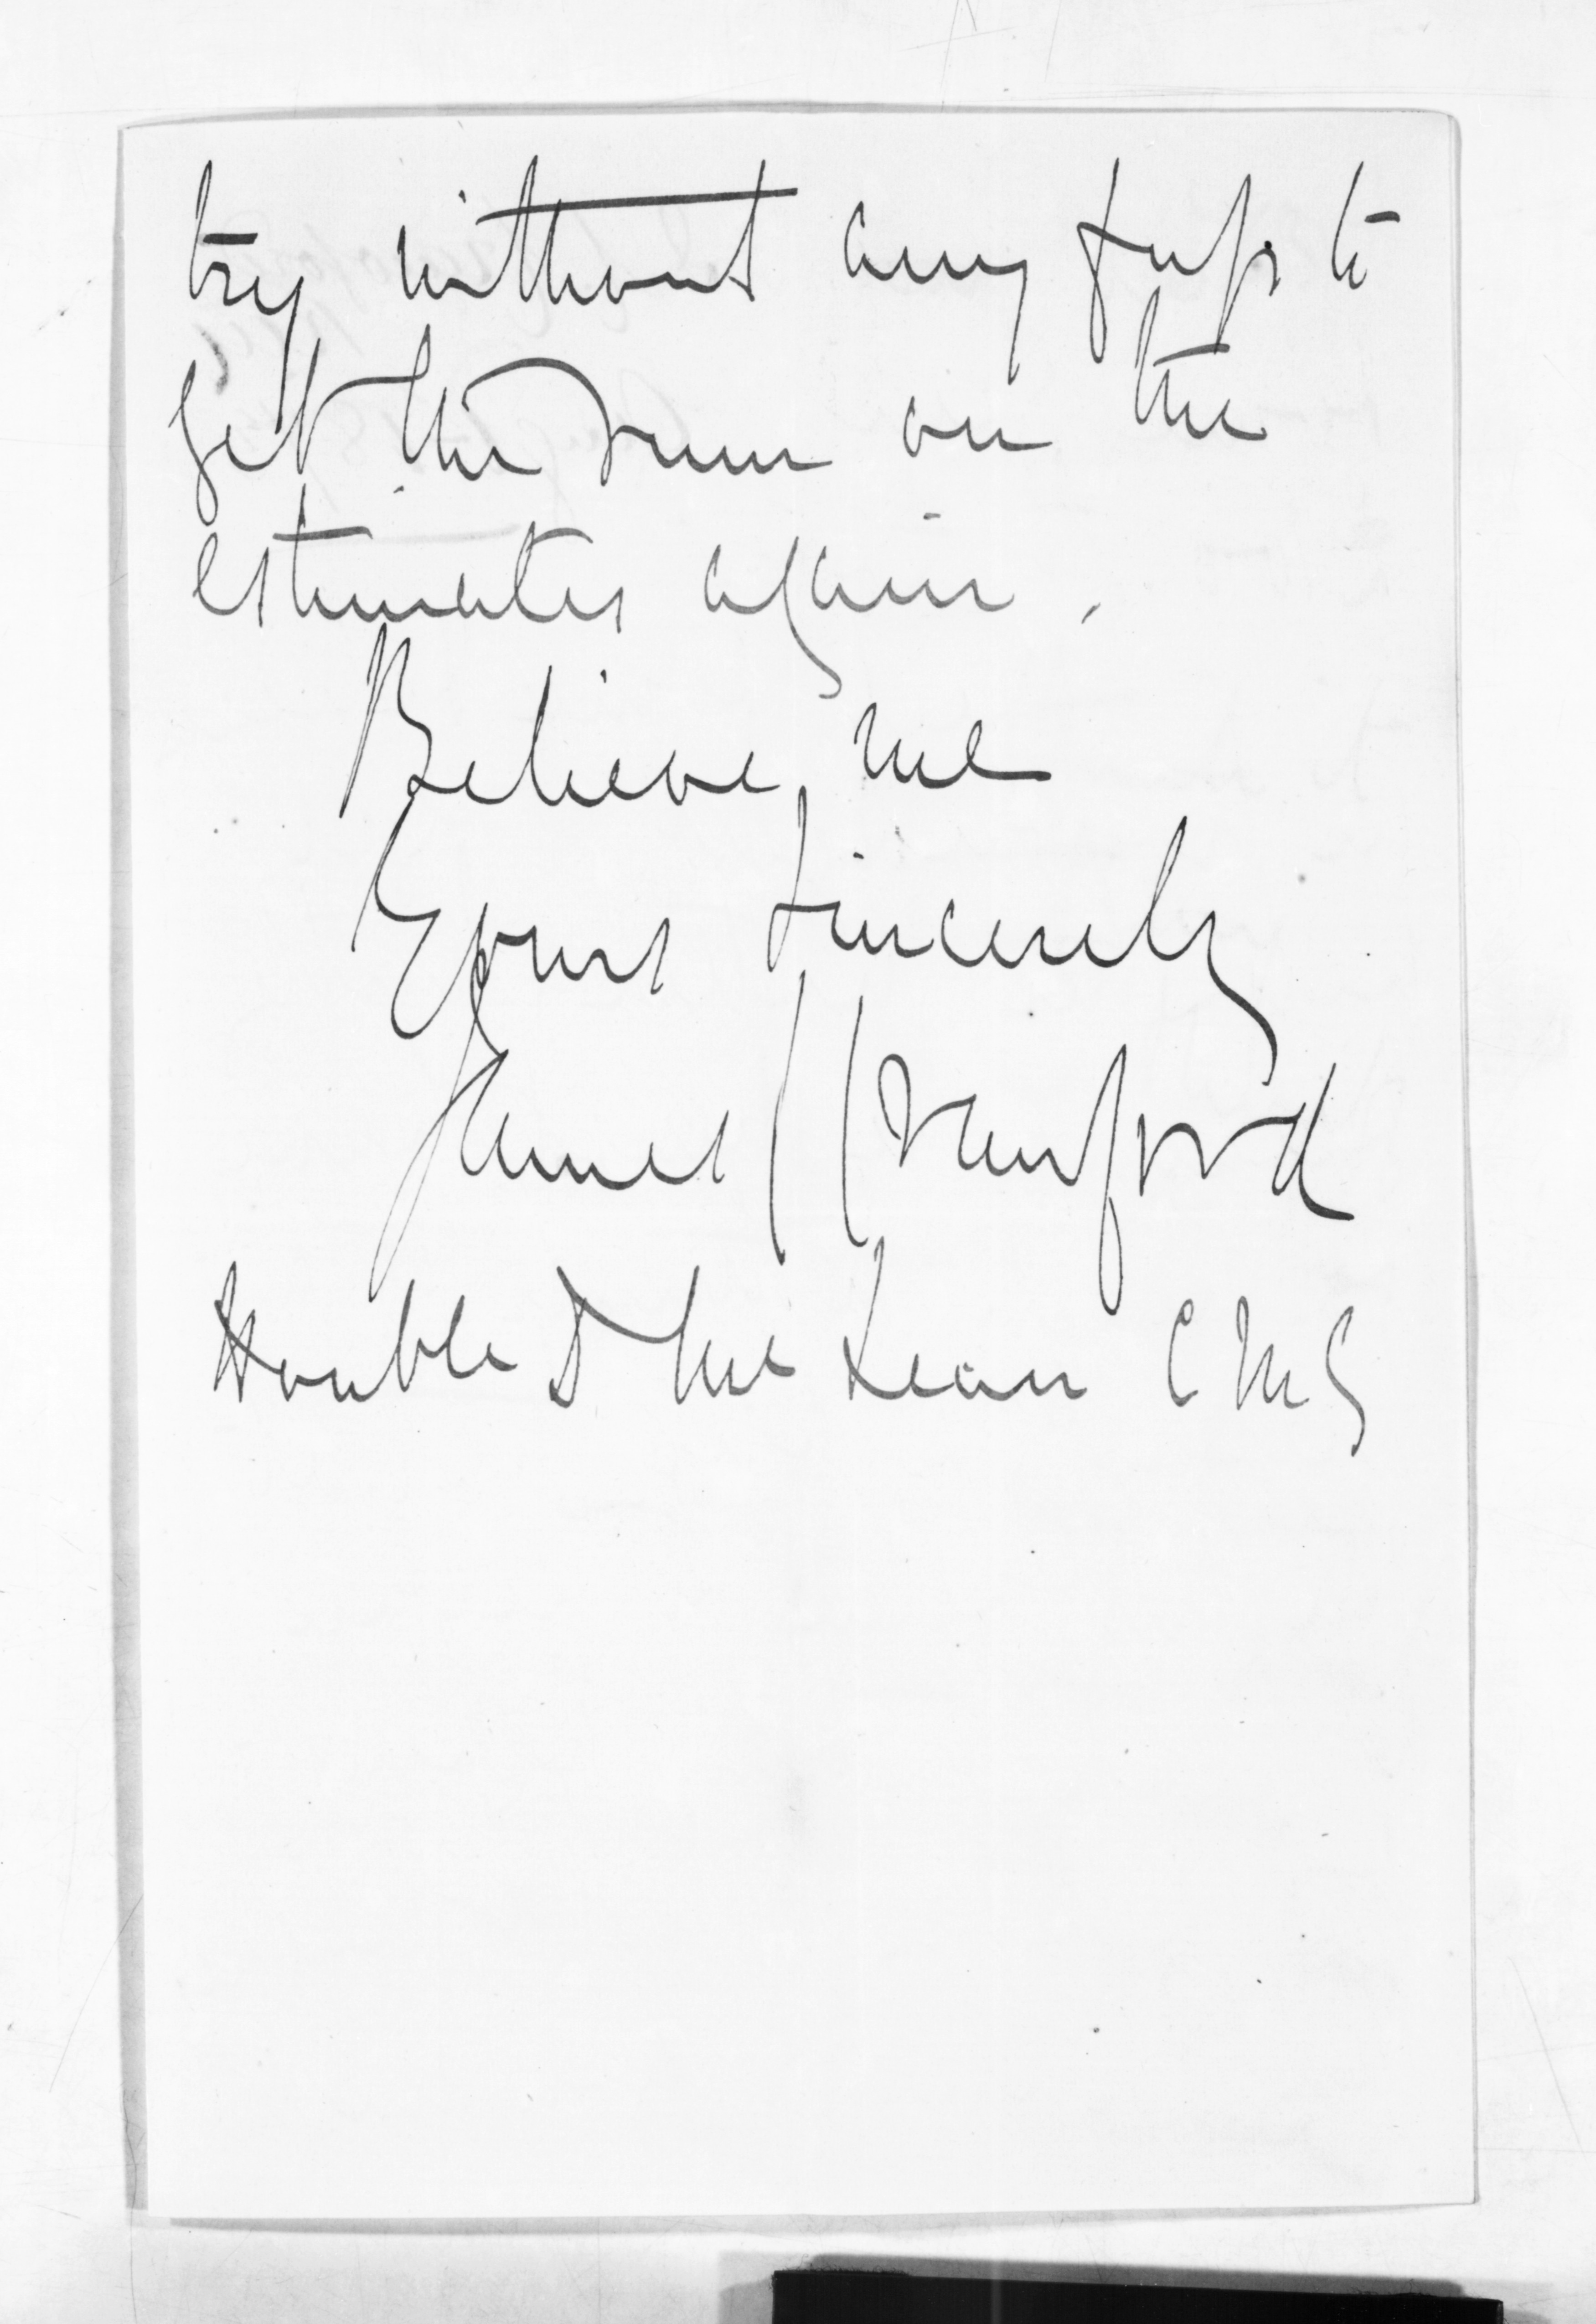 try without any fuss to
get the sum on the
estimates again.
Believe me
Yours sincerely
James Crawford
Honble D McLean CMG